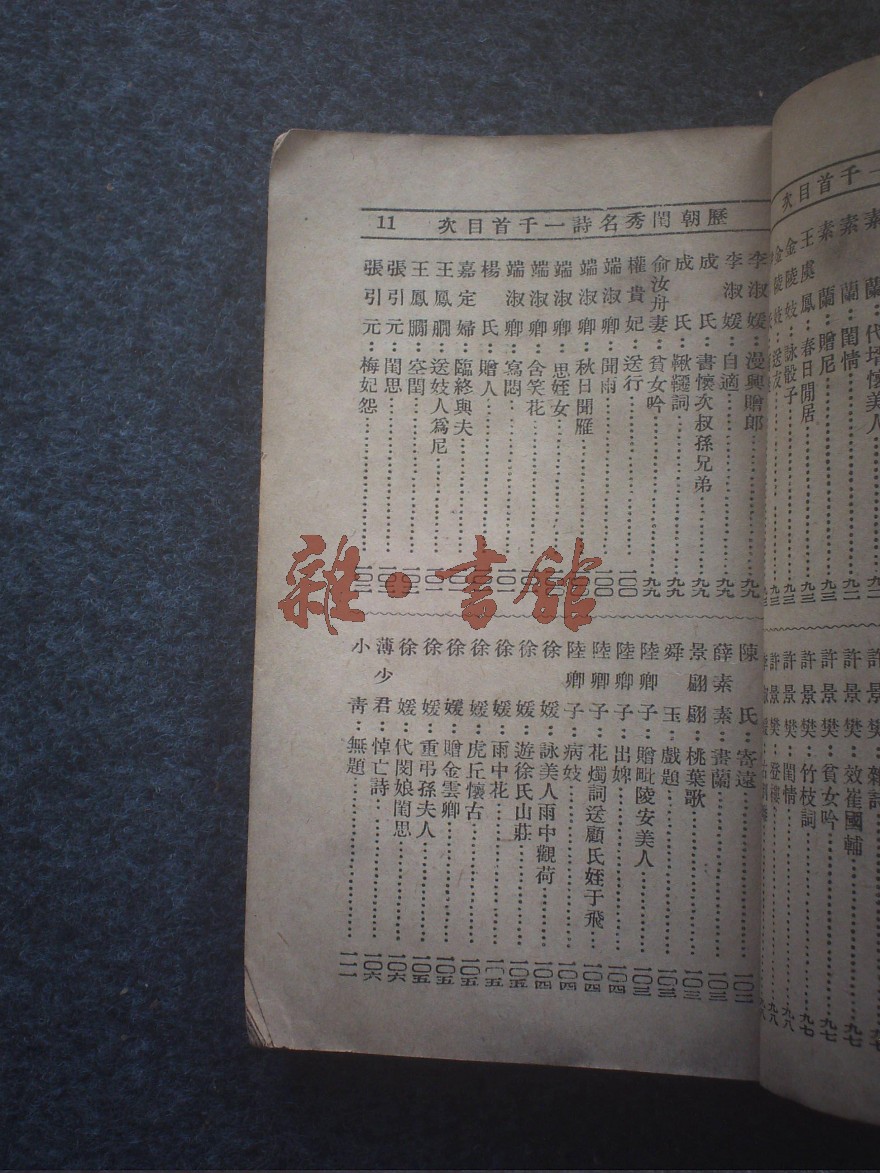 歷朝閨秀名詩一千首目次 11
李淑媛：漫興贈郎……九九
李淑媛：自適……九九
成　氏：書懷次叔孫兄弟……九九
成　氏：鞦韆詞……九九
俞汝舟妻：貧女吟……九九
權貴妃：送行……一〇〇
端淑卿：聞雨……
端淑卿：秋日聞雁……
端淑卿：思姪女……
端淑卿：含笑花……
端淑卿：寫悶……
楊　氏：贈人……
嘉定婦：臨終與夫……
王鳳嫺：送妓人爲尼……
王鳳嫺：空閨……
張引元：閨思……
張引元：梅妃怨……
陳　氏：寄遠……一〇二
薛素素：畫蘭……一〇三
景翩翩：桃葉歌……一〇三
舜　玉：戲題……一〇三
陸卿子：贈毗陵安美人……一〇三
陸卿子：出婢……一〇四
陸卿子：花燭詞送顧氏姪于飛……一〇四
陸卿子：病妓……一〇四
徐　媛：詠美人雨中觀荷……一〇四
徐　媛：遊徐氏山莊……一〇五
徐　媛：雨中花……一〇五
徐　媛：虎丘懷古……一〇五
徐　媛：贈金雲卿……一〇五
徐　媛：重弔孫夫人……一〇五
徐　媛：代閔娘閨思……一〇六
薄少君：悼亡詩……一〇六
小　靑：無題……一一一
次目首千一
素　蘭：代壻懷美人……
素　蘭：閨情……九二
素　蘭：贈尼……九三
王虞鳳：春日閒居……九三
金陵妓：詠骰子……九三
金陵妓：送友……九三
許景樊：雜詩……九七
許景樊：效崔國輔……九七
許景樊：貧女吟……九七
許景樊：竹枝詞……九七
許景樊：閨情……九八
許景樊：登樓……九八
雜·書館